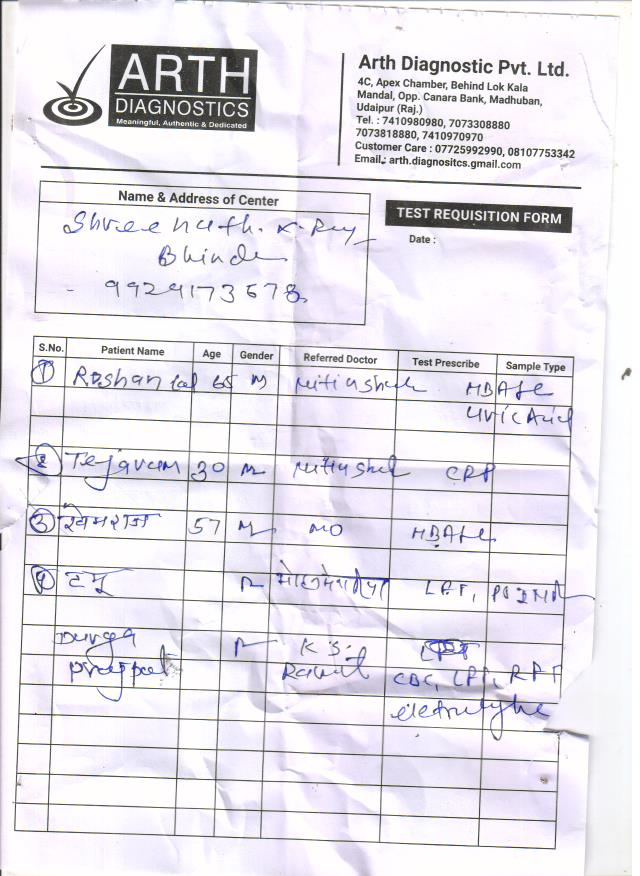 ARTH
DIAGNOSTICS
Meaningful, Authentic & Dedicated
Arth Diagnostic Pvt. Ltd.
4C, Apex Chamber, Behind Lok Kala
Mandal, Opp. Canara Bank, Madhuban,
Udaipur (Raj.)
Tel. : 7410980980, 7073308880
7073818880, 7410970970
Customer Care : 07725992990, 08107753342
Email.: arth.diagnositcs.gmail.com
Name & Address of Center
TEST REQUISITION FORM
Date :
Shreenath. X-Ray
Bhinder
9929173578
S.No. Patient Name Age Gender Referred Doctor Test Prescribe Sample Type
1 Roshan lal 65 M HBA1c
Uric Acid
2 Tejaram 30 M CRP
3 खेमराज 57 M MO HBA1c
4 टमू LFT,
Durga K S.
CBC, LFT, RFT